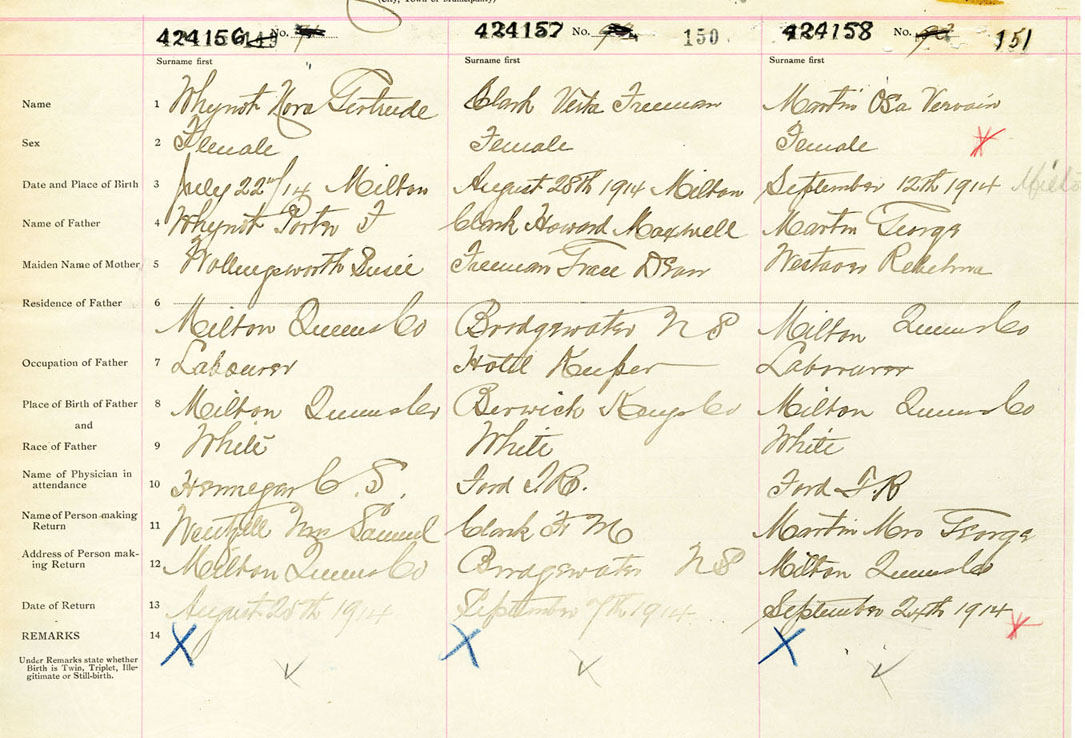 (City, Town or Municipality)
424156 149 No. 424157 No. 150 424158 No. 151
Surname first Surname first Surname first
Name 1 Whynot Nora Gertrude Clark Vesta Freeman Martin Osa Vervain
Sex 2 Female Female Female
Date and Place of Birth 3 July 22nd/14 Milton August 28th 1914 Milton September 12th 1914 Milton
Name of Father 4 Whynot Porter F Clark Howard Maxwell Martin George
Maiden Name of Mother 5 Hollingsworth Susie Freeman Grace Dean Westaver
Residence of Father 6
Milton Queens Co Bridgewater N S Milton Queens Co
Occupation of Father 7 Labourer Hotel Keeper Labourer
Place of Birth of Father 8 Milton Queens Co Berwick Kings Co Milton Queens Co
and
Race of Father 9 White White White
Name of Physician in
attendance 10 Hennegar C. S. Ford T.R. Ford T.R
Name of Person making
Return 11 Wentzell Mrs Samuel Clark H M Martin Mrs George
Address of Person mak-
ing Return 12 Milton Queens Co Bridgewater N S Milton Queens Co
Date of Return 13 August 28th 1914 September 7th 1914 September 24th 1914
REMARKS 14 X X X
Under Remarks state whether
Birth is Twin, Triplet, Ille-
gitimate or Still-birth.